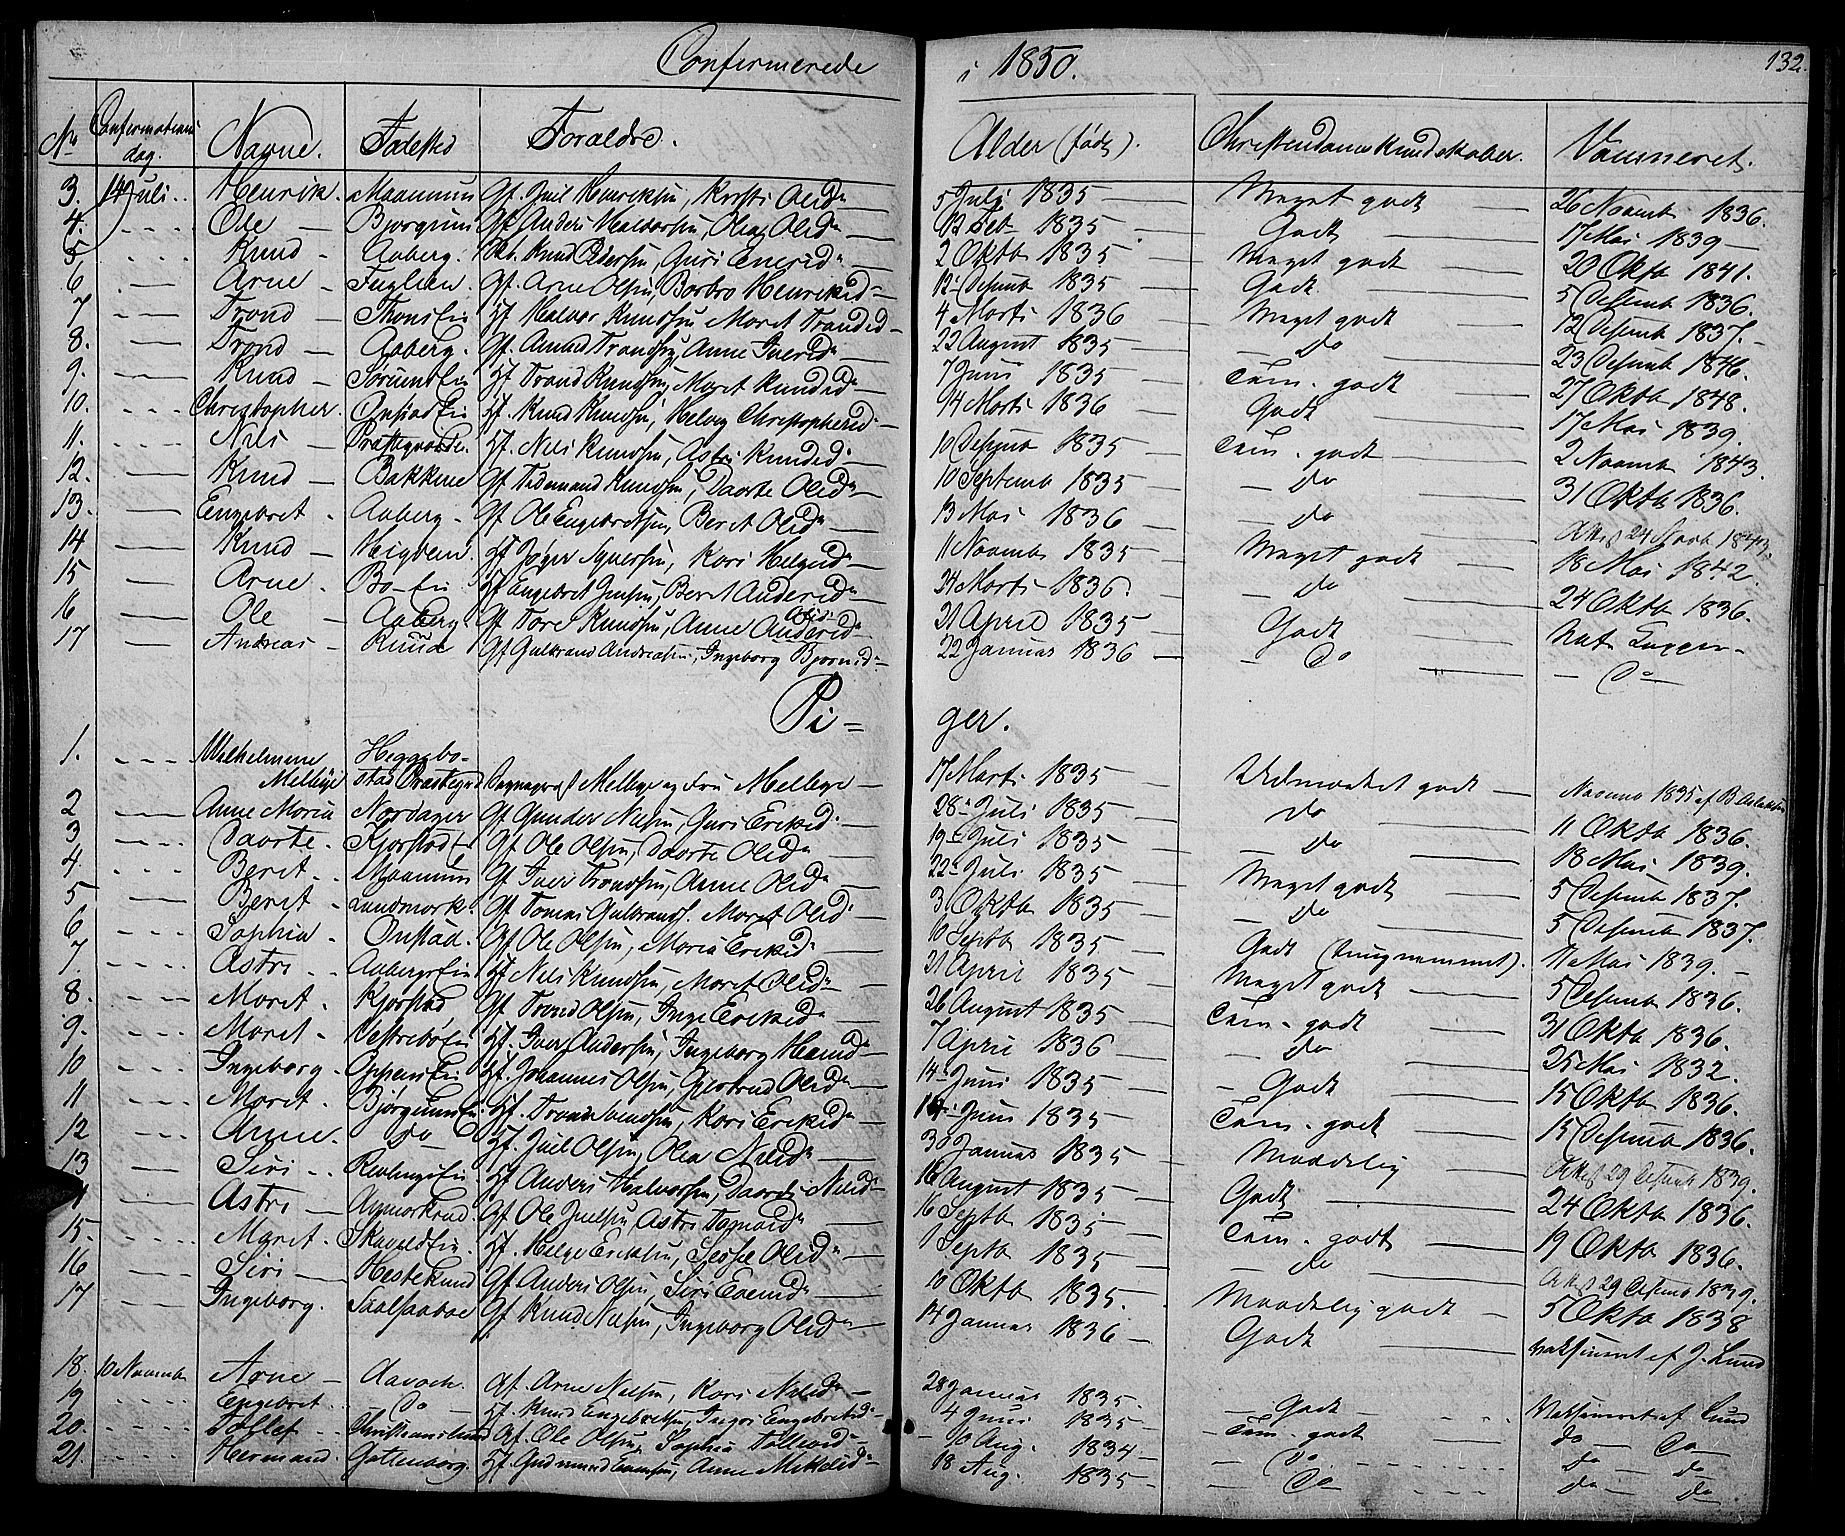 Confirmerede i 1850. 132.
No Confirmationsdag. Navne. Fødested Forældre. Alder (født). Christendoms Kundskaber. Vaccineret.
3. 14 Juli Henrik Maanum Gf. Juel Henriksen, Kirsti Olsd. 5 Juli 1835 Meget godt 26 Novemb 1836.
4. Ole Bjørgum Gf Anders Halvorsen, Olea Olsd. 12 Feb 1835 Godt 17 Mai 1839
5 Knud Aaberg. Knud Pedersen, Guri Iversd. 2 Oktb 1835 Meget godt 20 Oktb 1841.
6 Arne Fuglien. Gf. Arne Olsen, Barbro Henriksd. 12 Desemb 1835 Godt 5 Desemb 1836.
7 Trond Hf. Halvor Knudsen Maret Trondsd 4 Marts 1836 Meget godt 12 Desemb 1837.
8. Trond Aaberg. Gf. Amund Trondsen, Anne Iversd. 22 August 1835 do 23 Desemb 1846.
9. Knud Hf. Trond Knudsen, Maret Knudsd. 7 Juni 1835 Tem. godt 27 Oktb 1848.
10. Christopher. Hf. Knud Knudsen, Helvig Christophersd. 14 Marts 1836 Godt 17 Mai 1839.
11. Nils Præstgaarde. Hf. Nils Knudsen, Astri Knudsd. 10 Desemb 1835 Tem. godt 2 Novemb 1843.
12. Knud Bakkene Gf Tidemand Knudsen, Daarte Olsd. 10 Septemb 1835 do 31 Oktb 1836.
13. Engebret Aaberg. Gf Ole Engebretsen, Beret Olsd. 13 Mai 1836 do 24 Novb 1843.
14 Knud Heigdem. Hf. Kari Helgesd. 11 Novemb 1835 Meget godt 18 Mai 1842.
15 Arne Hf Engebret Jensen, Beret Andersd. 24 Marts 1836. do 24 Oktb 1836.
16 Ole Aaberg Gf Tore Knudsen, Anne Andersd. Olsd. 21 April 1835 Godt Nat. Kopper
17 Andreas Gf Gulbrand Andreassen, Ingeborg Bjørnsd. 22 Januar 1836 Do Do
Piger.
1. Wilhelmine Melbye Heggebostad Præstegrd Sogneprest Melbye og Fru Melbye 17 Marts 1835 Udmærket godt Novemb 1835 af
2 Anne Maria Nordager Gf Gunder Nilsen, Guri Eriksd. 28 Juli 1835 do 11 Oktb 1836.
3 Daarte. Kjørstad Gf Ole Olsen, Daarte Olsd. 19 Juli 1835 do 18 Mai 1839.
4. Beret. Maanum Gf Iver Trondsen, Anne Olsd. 22 Juli 1835 Meget godt 5 Desemb 1837.
5 Beret Lundmork. Gf Tomas Gulbrands. Maret Olsd. 3 Oktb 1835 do 5 Desemb 1837.
6 Sophia. Onstad. Gf Ole Olsen, Maria Eriksd. 10 Septb 1835 Godt (tungnemmet). 11 Mai 1839.
7. Astri Hf Nils Knudsen, Maret Olsd. 21 April 1835 Meget godt 5 Desemb 1836.
8. Maret. Kjørstad, Gf Trond Olsen, Inge Eriksd. 26 August 1835 Tem. godt 31 Oktb 1836.
9. Maret Hf. Iver Andersen, Ingeborg 7 April 1836 do 25 Mai 1832.
10 Ingeborg. Hf. Johannes Olsen, Gjertrud Olsd. 14 Juni 1835 Godt 15 Oktb 1836.
11 Maret. Hf. Trond Iversen, Kari Eriksd. 14 Juni 1835 Tem. godt 15 Desemb 1836.
12 Anne. do Hf. Juel Olsen, Olea Nilsd. 30 Januar 1835 Maadelig 29 Desemb 1839.
13 Siri Hf Anders Halvorsen, Daarte Nilsd. 16 August 1835 Godt 24 Oktb 1836.
14 Astri Gf Ole Juelsen, Astri Tomasd. 16 Septb 1835 Tem. godt 19 Oktb 1836.
15. Maret. Hf. Helge Eriksen, Sessel Olsd. 1 Septb 1835 do 29 Desemb 1839.
16 Siri Hestekind Gf Anders Olsen, Siri Evensd. 10 Oktb 1835. Maadelig godt 5 Oktb 1838
17 Ingeborg. Gf Knud Nilsen, Ingeborg Olsd. 14 Januar 1836 Godt vaksineret af J. Lund
18. 10 Novemb Arne Gf. Arne Nilsen, Kari Nilsd. 28 Januar 1835. Godt Vaksineret af Lund
19 Engebret. Do Hf. Knud Engebretsen, Inger Engebretsd. 4 Juni 1835 Tem. godt do Do
20. Tollef Christianslund Gf. Ole Olsen, Sophia Tollevsd. 10 Aug. 1834 Do do do
21. Hermand. Gottenborg. Hf. Gudmund Evensen, Anne Mikkelsd. 18 Aug. 1835 Do do do